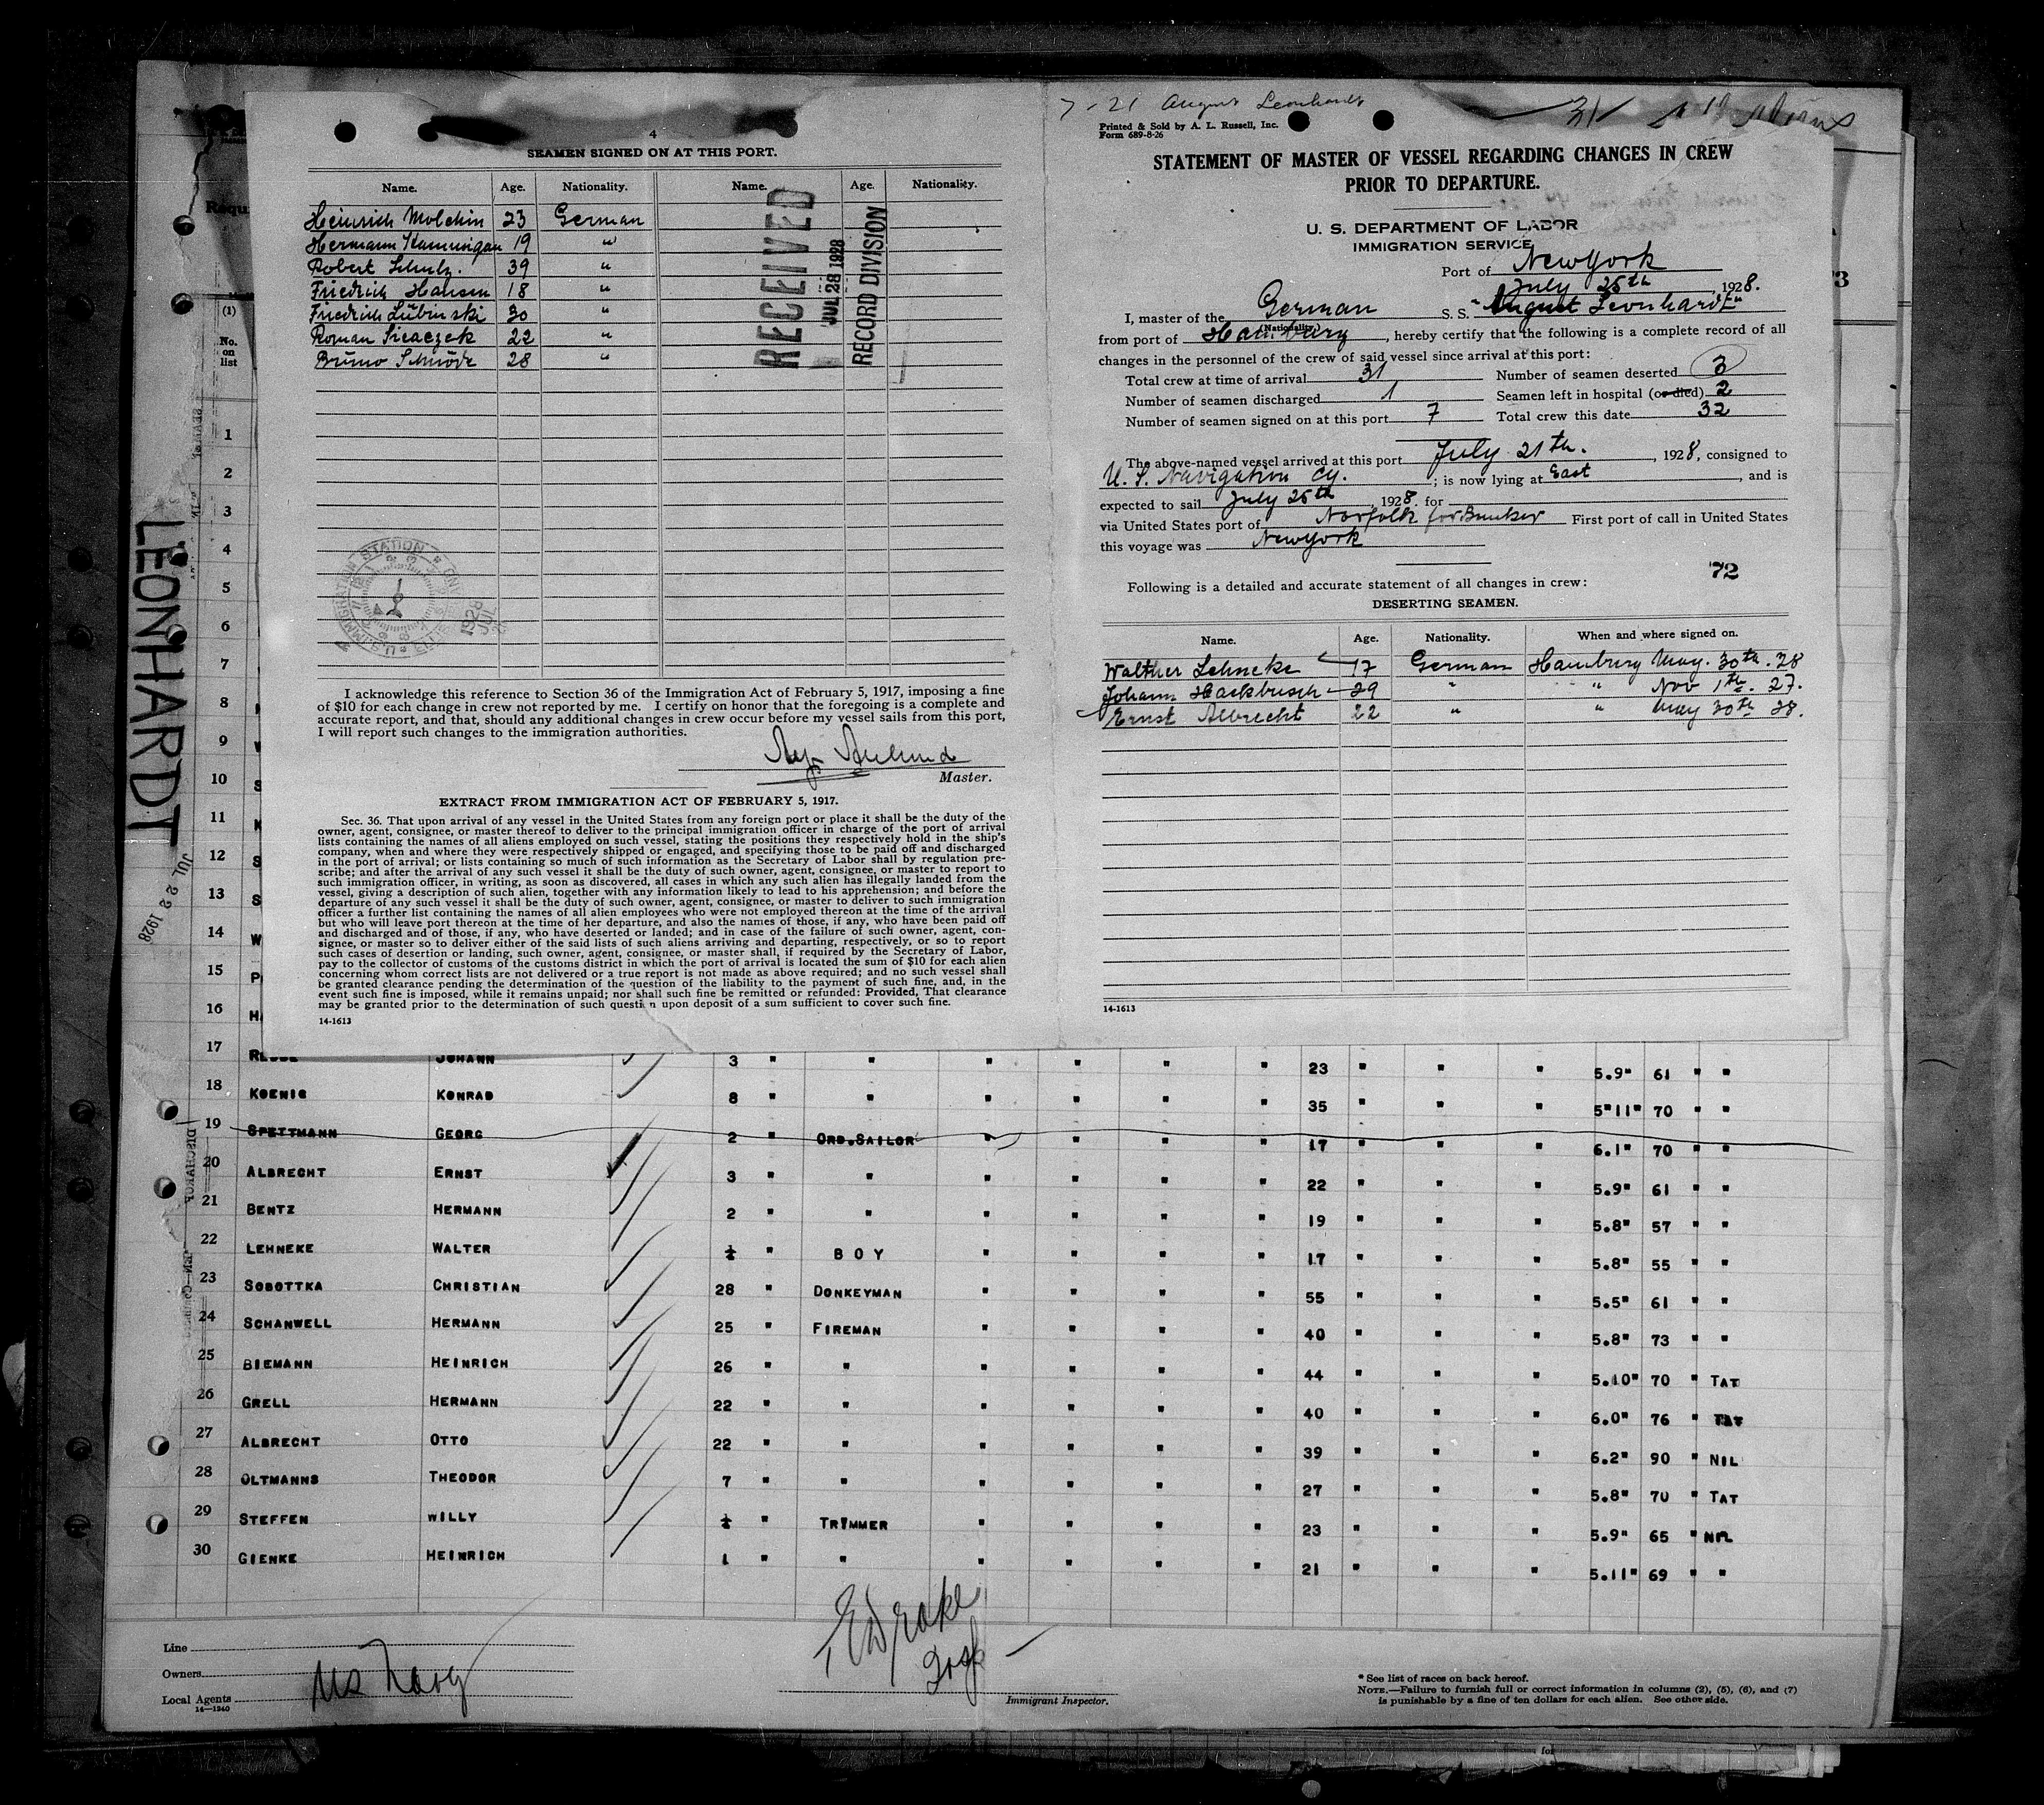 4
SEAMEN SIGNED ON AT THIS PORT.
Name. Age. Nationality. Name. Age. Nationality.
Heinrich Molchin 23 German
Hermann 19 "
Robert Schulz. 39 "
Friedrich Hansen 18 "
Friedrich Lübinski 30 "
Roman 22 "
Bruno Schröde 28 "
RECEIVED
JUL 28 1928
RECORD DIVISION
U.S. IMMIGRATION STATION
1928
JUL
I acknowledge this reference to Section 36 of the Immigration Act of February 5, 1917, imposing a fine
of $10 for each change in crew not reported by me. I certify on honor that the foregoing is a complete and
accurate report, and that, should any additional changes in crew occur before my vessel sails from this port,
I will report such changes to the immigration authorities.
Master.
EXTRACT FROM IMMIGRATION ACT OF FEBRUARY 5, 1917.
Sec. 36. That upon arrival of any vessel in the United States from any foreign port or place it shall be the duty of the
owner, agent, consignee, or master thereof to deliver to the principal immigration officer in charge of the port of arrival
lists containing the names of all aliens employed on such vessel, stating the positions they respectively hold in the ship's
company, when and where they were respectively shipped or engaged, and specifying those to be paid off and discharged
in the port of arrival; or lists containing so much of such information as the Secretary of Labor shall by regulation pre-
scribe; and after the arrival of any such vessel it shall be the duty of such owner, agent, consignee, or master to report to
such immigration officer, in writing, as soon as discovered, all cases in which any such alien has illegally landed from the
vessel, giving a description of such alien, together with any information likely to lead to his apprehension; and before the
departure of any such vessel it shall be the duty of such owner, agent, consignee, or master to deliver to such immigration
officer a further list containing the names of all alien employees who were not employed thereon at the time of the arrival
but who will leave port thereon at the time of her departure, and also the names of those, if any, who have been paid off
and discharged and of those, if any, who have deserted or landed; and in case of the failure of such owner, agent, con-
signee, or master so to deliver either of the said lists of such aliens arriving and departing, respectively, or so to report
such cases of desertion or landing, such owner, agent, consignee, or master shall, if required by the Secretary of Labor,
pay to the collector of customs of the customs district in which the port of arrival is located the sum of $10 for each alien
concerning whom correct lists are not delivered or a true report is not made as above required; and no such vessel shall
be granted clearance pending the determination of the question of the liability to the payment of such fine, and, in the
event such fine is imposed, while it remains unpaid; nor shall such fine be remitted or refunded: Provided, That clearance
may be granted prior to the determination of such question upon deposit of a sum sufficient to cover such fine.
14-1613
7-21 August Leonhardt
31
Printed & Sold by A. L. Russell, Inc.
Form 689-8-26
STATEMENT OF MASTER OF VESSEL REGARDING CHANGES IN CREW
PRIOR TO DEPARTURE.
U. S. DEPARTMENT OF LABOR
IMMIGRATION SERVICE
Port of New York
July 25th, 1928.
I, master of the German S. S. "August Leonhardt"
(Nationality)
from port of Hamburg, hereby certify that the following is a complete record of all
changes in the personnel of the crew of said vessel since arrival at this port:
Total crew at time of arrival 31 Number of seamen deserted 3
Number of seamen discharged 1 Seamen left in hospital (or died) 2
Number of seamen signed on at this port 7 Total crew this date 32
The above-named vessel arrived at this port July 21th., 1928, consigned to
U. S. Navigation Cy. ; is now lying at East, and is
expected to sail July 25th, 1928. for
via United States port of Norfolk for Bunker First port of call in United States
this voyage was New York
72
Following is a detailed and accurate statement of all changes in crew:
DESERTING SEAMEN.
Name. Age. Nationality. When and where signed on.
Walther Lehneke 17 German Hamburg May. 30th. 28
Johann Hackbusch 29 " " Nov 1th. 27.
Ernst Albrecht 22 " " May 30th 28.
14-1613
LEONHARDT
JUL 22 1928
Requ
(1)
No.
on
list
3
1
2
3
4
5
6
7
8
9 W
10 S
11 K
12 S
13 S
14 W
15 P
16 H
17 JOHANN 3 " " " " " " 23 " " " 5.9" 61 " "
18 KOENIG KONRAD 8 " " " " " " 35 " " " 5"11" 70 " "
19 SPETTMANN GEORG 2 " ORD.SAILOR " " " " 17 " " " 6.1" 70 " "
20 ALBRECHT ERNST 3 " " " " " " 22 " " " 5.9" 61 " "
21 BENTZ HERMANN 2 " " " " " " 19 " " " 5.8" 57 " "
22 LEHNEKE WALTER " BOY " " " " 17 " " " 5.8" 55 " "
23 SOBOTTKA CHRISTIAN 28 " DONKEYMAN " " " " 55 " " " 5.5" 61 " "
24 SCHANWELL HERMANN 25 " FIREMAN " " " " 40 " " " 5.8" 73 " "
25 BIEMANN HEINRICH 26 " " " " " " 44 " " " 5.10" 70 " TAT
26 GRELL HERMANN 22 " " " " " " 40 " " " 6.0" 76 " TAT
27 ALBRECHT OTTO 22 " " " " " " 39 " " " 6.2" 90 " NIL
28 OLTMANNS THEODOR 7 " " " " " " 27 " " " 5.8" 70 " TAT
29 STEFFEN WILLY " TRIMMER " " " " 23 " " " 5.9" 65 " NIL
30 GIENKE HEINRICH 1 " " " " " " 21 " " " 5.11" 69 " "
Line
Owners
Local Agents US Navg
14-1240
EDrake
Immigrant Inspector.
* See list of races on back hereof.
NOTE.—Failure to furnish full or correct information in columns (2), (5), (6), and (7)
is punishable by a fine of ten dollars for each alien. See other side.
for